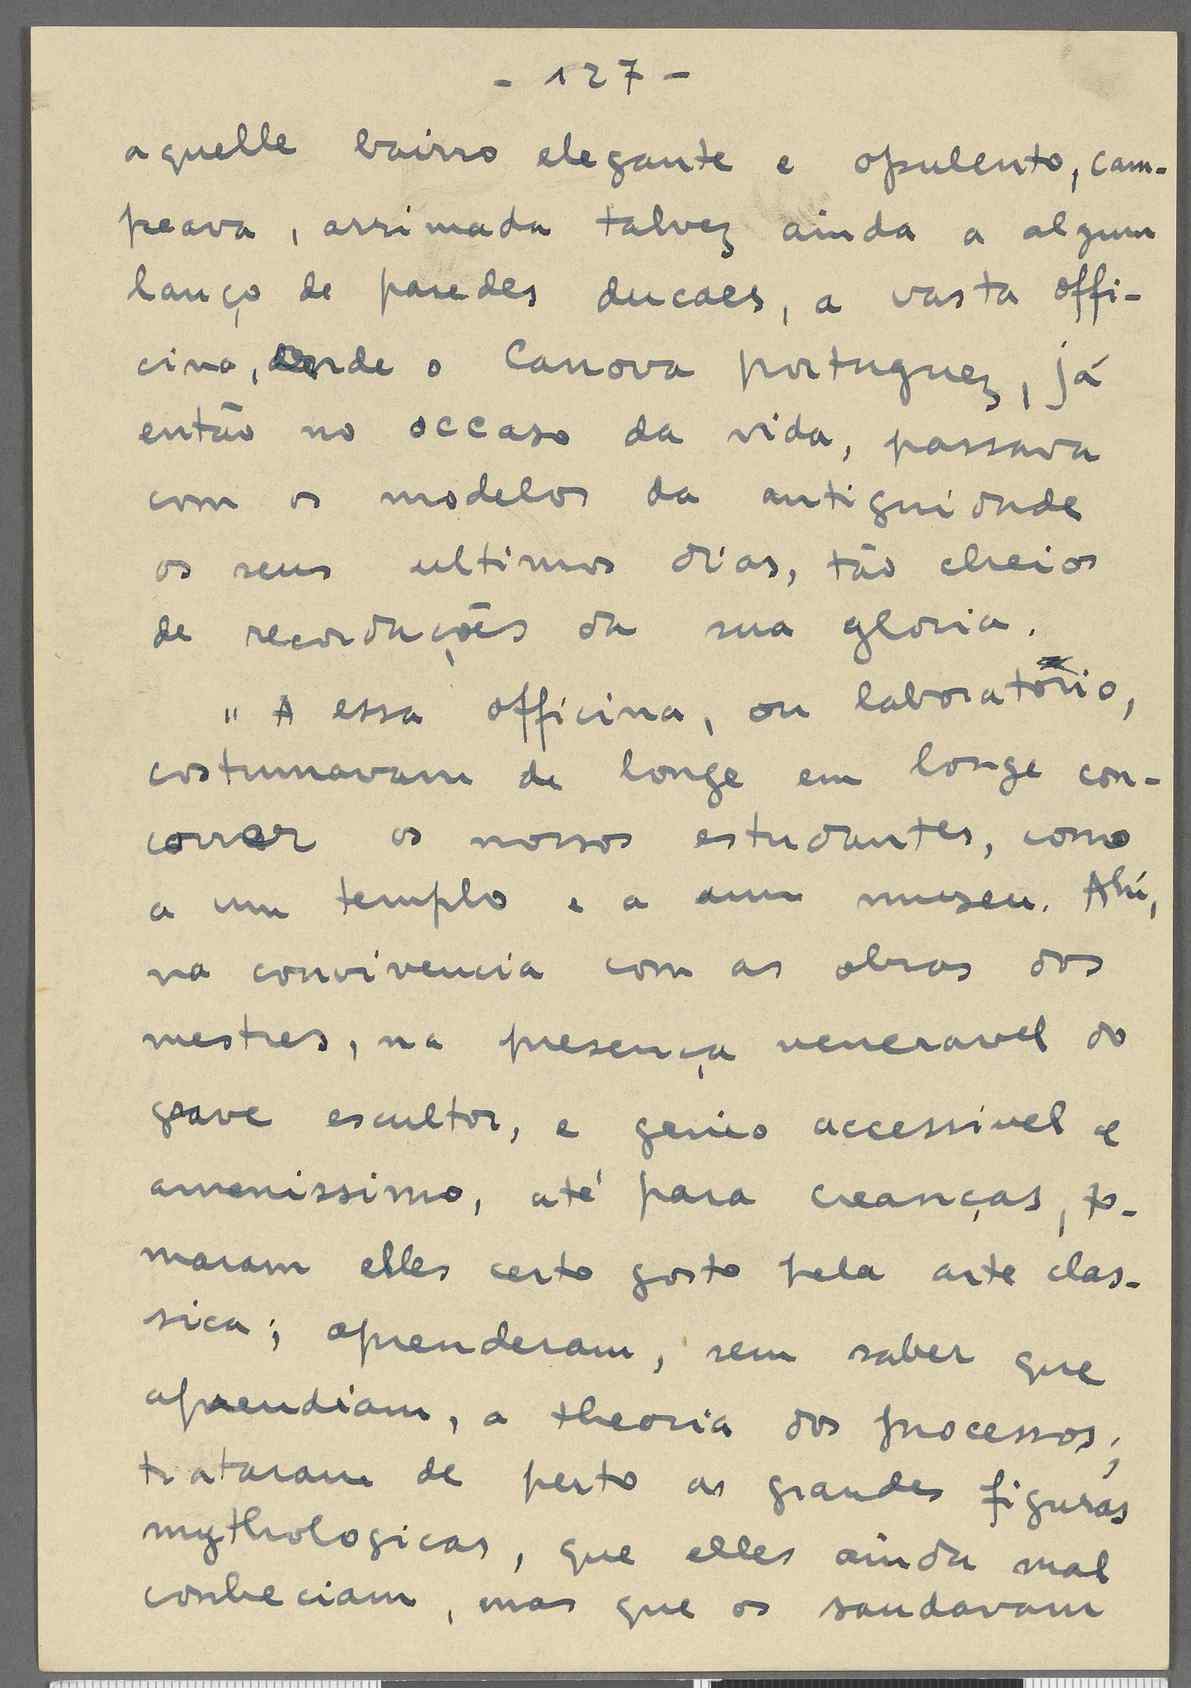 - 127 -
aquelle bairro elegante e opulento, cam-
peava, arrimada talvez ainda a algum
lanço de paredes ducaes, a vasta offi-
cina, onde o Canova portuguez, já
então no occaso da vida, passava
com os modelos da antiguidade
os seus ultimos dias, tão cheios
de recordações da sua gloria.
" A essa officina, ou laboratorio,
costumavam de longe em longe con-
correr os nossos estudantes, como
a um templo e a um museu. Ahi,
na convivencia com as obras dos
mestres, na presença veneravel do
grave escultor, e genio accessivel e
amenissimo, até para creanças, to-
maram elles certo gosto pela arte clas-
sica; aprenderam, sem saber que
aprendiam, a theoria dos processos;
trataram de perto as grandes figuras
mythologicas, que elles ainda mal
conheciam, mas que os saudavam